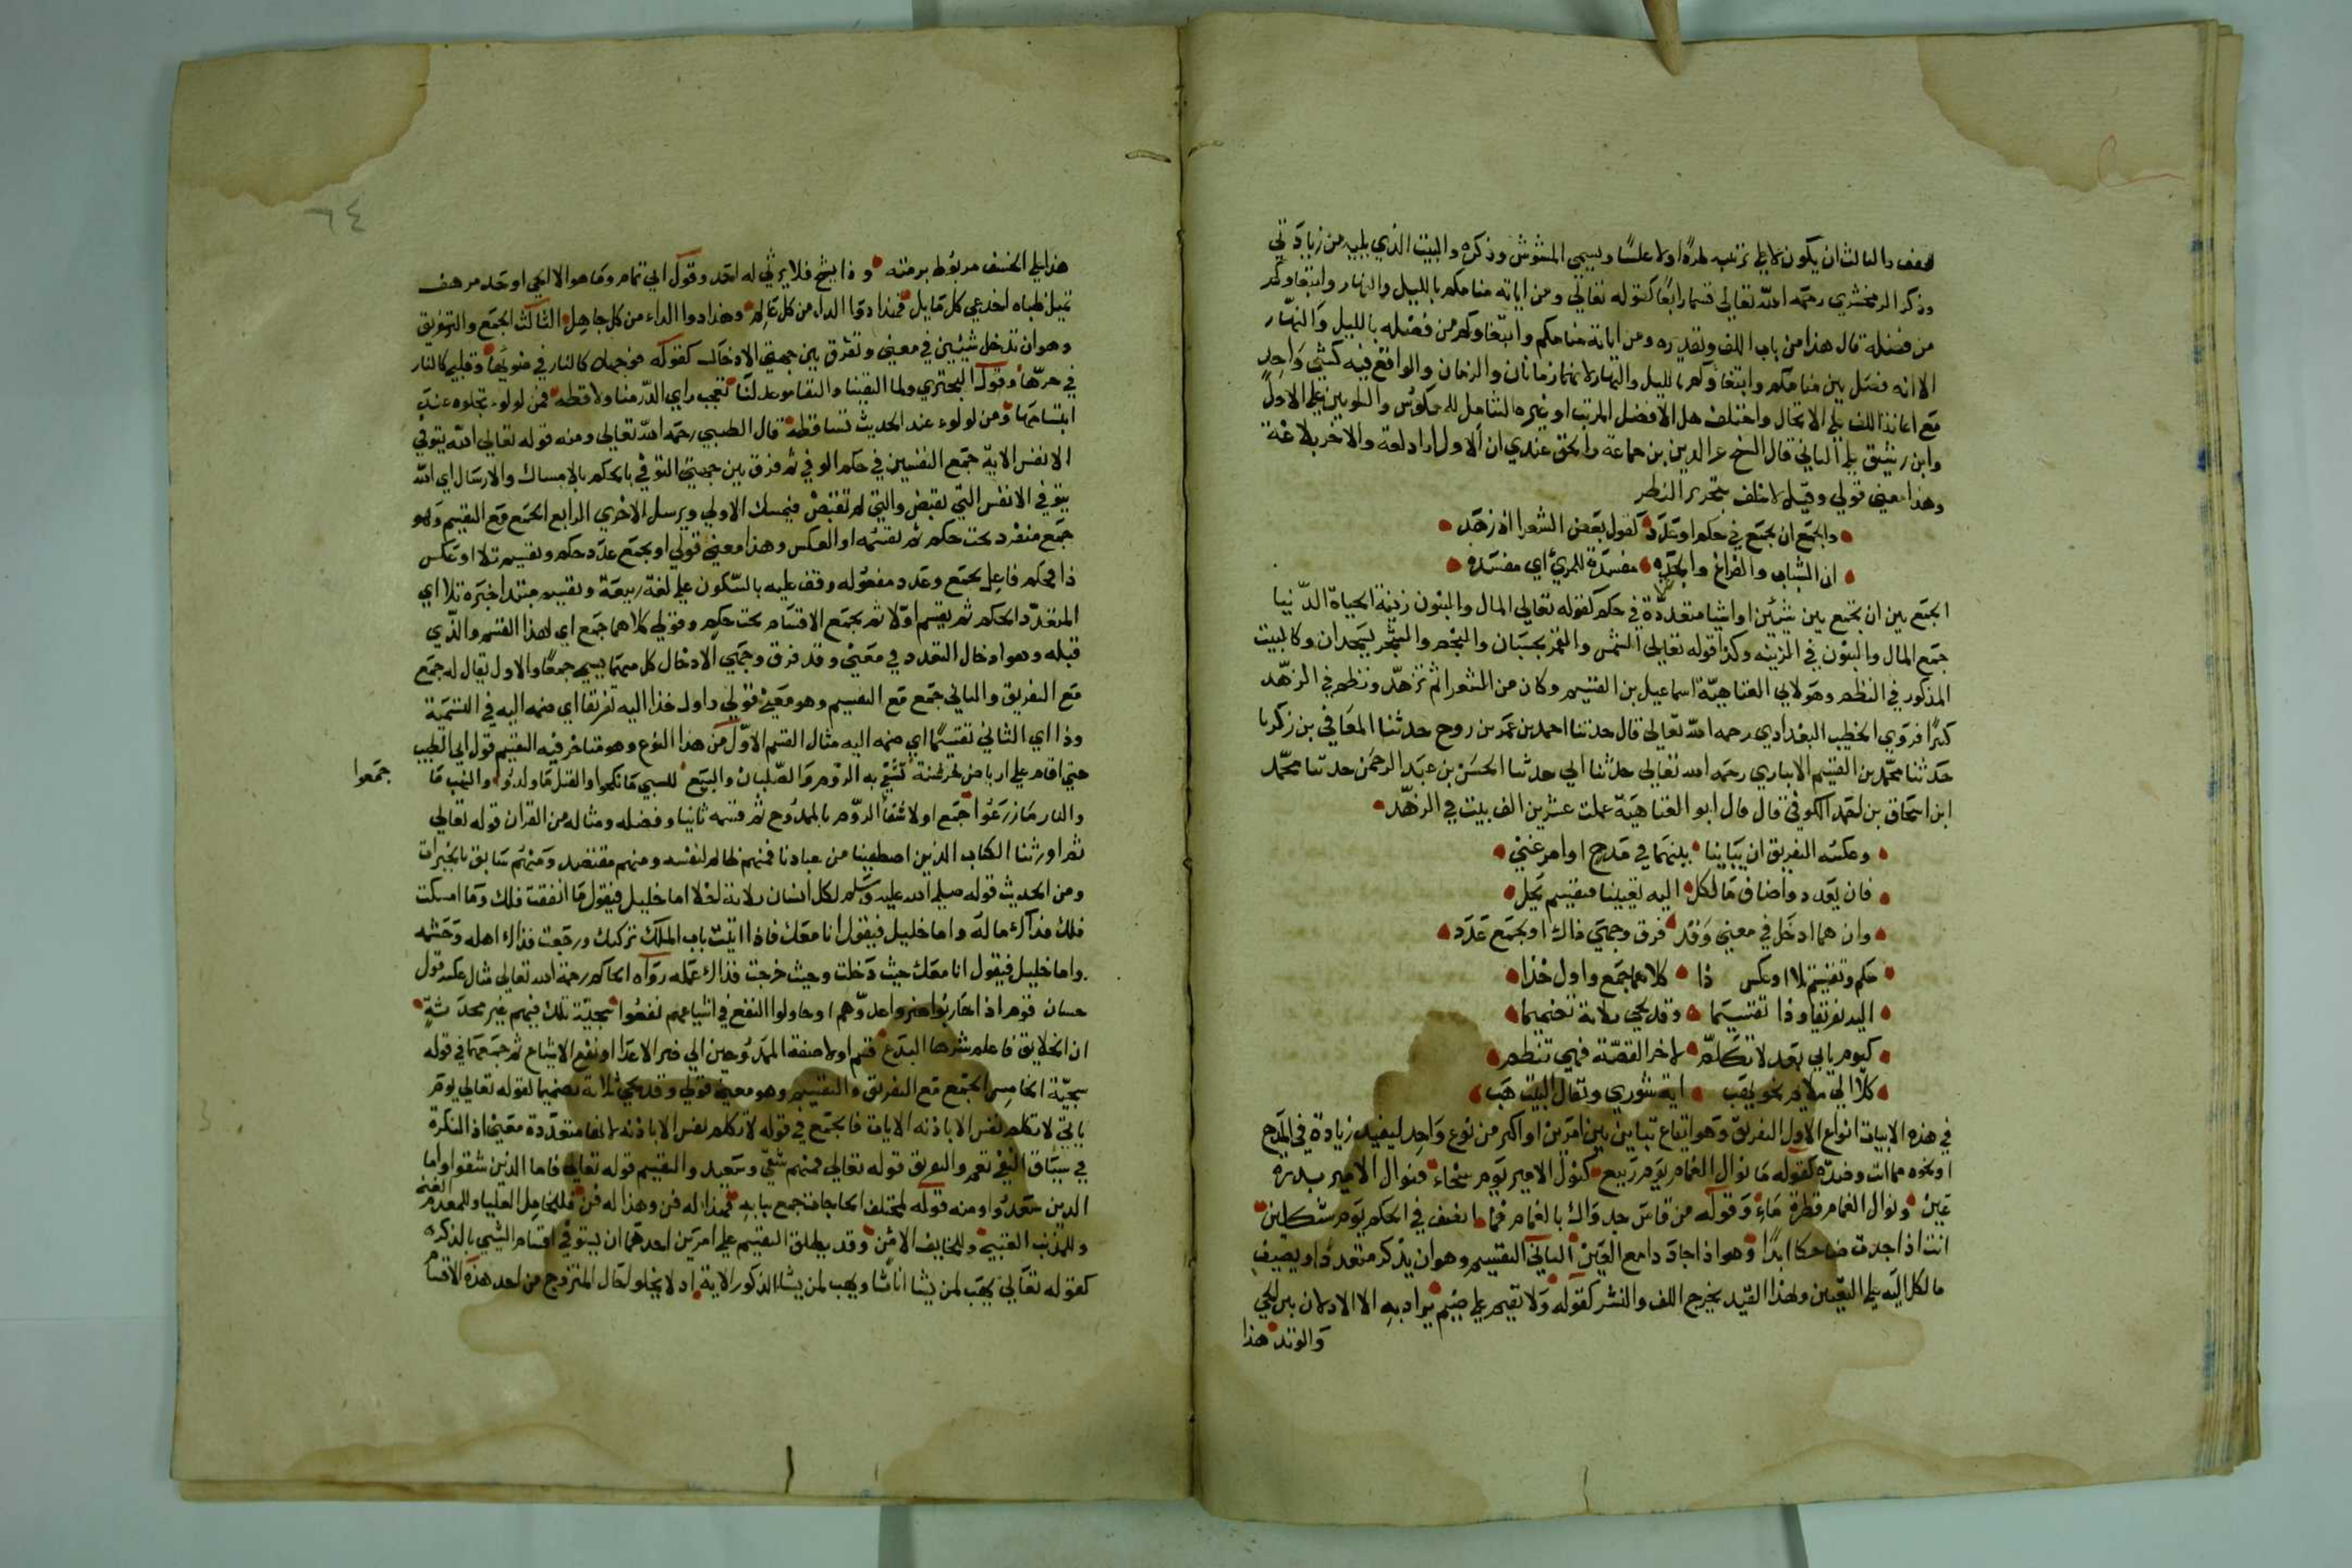 ففف والثالث ان يكون لا على ترتيبه طردًا ولا عكسًا ويسمى المشوش وذكره والبيت الذي يليه من زيادتي
وذكر الزمخشري رحمه الله تعالى قسما رابعًا كقوله تعالى ومن اياته منامكم بالليل والنهار وابتغاوكم
من فضله قال هذا من باب اللف وتقديره ومن اياته منامكم وابتغاوكم من فضله بالليل والنهار
الا انه فصل بين منامكم وابتغاوكم بالليل والنهار لانهما زمانان والزمان والواقع فيه كشي واحد
مع اعانة اللف على الاتحاد واختلف هل الافضل المرتب او غيره الشامل للمعكوس والشلوبين على الاول
وابن رشيق على الثاني قال الشيخ عز الدين بن جماعة والحق عندي ان الاول اراد لغة والاخر بلاغة
وهذا معنى قولي وقيل لا خلف بتحرير النظر
والجمع ان يجمع في حكم او عدد كقول بعض الشعرا اذ زهد
ان الشباب والفراغ والجده مفسدة للمرئ اي مفسده
الجمع بين ان يجمع بين شيئين او اشيا متعددة في حكم كقوله تعالى المال والبنون زينة الحياة الدنيا
جمع المال والبنون في الزينه وكذا قوله تعالى الشمس والقمر بحسبان والنجم والشجر يسجدان وكالبيت
المذكور في النظم وهو لابي العتاهية اسماعيل بن القسيم وكان من الشعرا ثم تزهد ونظم في الزهد
كثيرًا فروى الخطيب البغدادي رحمه الله تعالى قال حدثنا احمد بن عمر بن روح حدثنا المعافي بن زكريا
حدثنا محمد بن القسم الانباري رحمه الله تعالى حدثنا ابي حدثنا الحسن بن عبد الرحمن حدثنا محمد
ابن اسحاق بن لحمد الكوفي قال قال ابو العتاهية عملت عشرين الف بيت في الزهد
وعكسه التفريق ان يباينا بينهما في مدح او امر غني
فان يعدد واضاف ما لكل اليه تعيينا فتقسيم يحل
وان هما ادخل في معنى وقد فرق وجمتي ذاك او يجمع عدد
حكم وتقسيم تلا او عكس ذا كلاهما جمع واول خذا
اليه تفريقا وذا تقسيما وقد يجي ثلاثة تضميما
كيوم ياتي بعد لا تكلم لاخر القصة فهي تنظم
كلا الى ملا نحو يهب اية شوري ويقال البيت هب
في هذه الابيات انواع الاول التفريق وهو ايقاع تباين بين امرين او اكثر من نوع واحد ليفيد زيادة في المدح
او نحوه مما ات وضده كقوله ما نوال الغمام يوم ربيع كنوال الامير يوم سخاء فنوال الامير بدرة
عين ونوال الغمام قطرة ماء وقوله من قاس جدواك بالغمام فما انصف في الحكم يوم شكلين
انت اذا جدت ضاحكا ابدًا وهو اذا جاد دامع العين الثاني التقسيم وهو ان يذكر متعدد او يضيف
ما لكل اليه على التعيين ولهذا القيد يخرج اللف والنشر كقوله ولا يقيم على ضيم يراد به الا الاذلان عير الحي
والوتد هذا
٦٤
هذا على الخسف مربوط برمته وذا يشج فلا يرثي له احد وقول ابي تمام وما هو الا الوحي او حد مرهف
تميل ظباه اخدعي كل مايل فهذا دوا الداء من كل عالم وهذا دوا الداء من كل جاهل الثالث الجمع والتفريق
وهو ان تدخل شيئين في معنى وتفرق بين جهتي الادخال كقوله فوجهك كالنار في ضوئها وقلبي كالنار
في حرها وقول البحتري ولما التقينا والنقا موعد لنا تعجب رايي الدر منا ولاقطه فمن لولو تجلوه عند
ابتسامها ومن لولوء عند الحديث تساقطه قال الطيبي رحمه الله تعالى ومنه قوله تعالى الله يتوفي
الانفس الاية جمع النفسين في حكم التوفي ثم فرق بين جهتي التوفي بالحكم بالامساك والارسال اي الله
يتوفي الانفس التي تقبض والتي لم تقبض فيمسك الاولى ويرسل الاخرى الرابع الجمع مع التقسيم وهو
جمع متفرد تحت حكم ثم تقسيمه او العكس وهذا معنى قولي او يجمع عدد حكم وتقسيم تلا او عكس
ذا فحكم فاعل يجمع وعدد مفعوله وقف عليه بالسكون على لغة ربيعة وتقسيم مبتدا خبره تلا اي
المتعدد الحكم ثم يقسم اولا ثم يجمع الاقسام تحت حكم وقولي كلاهما جمع اي لهذا القسم والذي
قبله وهو ادخال التعدد في معنى وقد فرق وجهي الادخال كل منهما يسمى جمعًا والاول يقال له جمع
مع التفريق والثاني جمع مع التقسيم وهو معنى قولي واول خذا اليه تفريقا اي ضمه اليه في التسمية
وذا اي الثاني تقسيمًا اي ضمه اليه مثال القسم الاول من هذا النوع وهو ما اخر فيه التقسيم قول ابي الطيب
حتى اقام على ارباض خرشنة تشقى به الروم والصلبان والبيع للسبي ما نكحوا والقتل ما ولدوا والنهب ما
جمعوا
والنار ما زرعوا جمع اولا شقا الروم بالممدوح ثم قسمه ثانيا وفصله ومثاله من القران قوله تعالى
ثم اورثنا الكتاب الذين اصطفينا من عبادنا فمنهم ظالم لنفسه ومنهم مقتصد ومنهم سابق بالخيرات
ومن الحديث قوله صلى الله عليه وسلم لكل انسان ثلاثة اخلا اما خليل فيقول ما انفقت فلك وما امسكت
فلك فذاك ماله واما خليل فيقول انا معك فاذا اتيت باب الملك تركتك ورجعت فذاك اهله وحشمه
واما خليل فيقول انا معك حيث دخلت وحيث خرجت فذاك عمله رواه الحاكم رحمه الله تعالى مثال عكسه قول
حسان قوم اذا حاربوا ضروا عدوهم او حاولوا النفع في اشياعهم نفعوا سجية تلك فيهم غير محدثة
ان الخلايق فاعلم شرها البدع قسم اولا صفة الممدوحين الى ضر الاعدا او نفع الاشياع ثم جمعهما في قوله
سجية الخامس الجمع مع التفريق والتقسيم وهو معنى قولي وقد يجي ثلاثة تضميما كقوله تعالى يوم
ياتي لا تكلم نفس الا باذنه الايات فالجمع في قوله لا تكلم نفس الا باذنه لانها متعددة معنى اذ النكرة
في سياق النفي تعم والتفريق قوله تعالى فمنهم شقي وسعيد والتقسيم قوله تعالى فاما الذين شقوا واما
الذين سعدوا ومنه قوله لمختلف الحاجات جمع ببابه فهذا له فن وهذا له فن فللخامل العليا وللمعدم الغنى
وللمذنب العتبى وللخايف الامن وقد يطلق التقسيم على امرين احدهما ان يستوفي اقسام الشي بالذكر
كقوله تعالى يهب لمن يشا اناثا ويهب لمن يشا الذكور الاية اذ لا يخلو حال المتزوج من احد هذه الاقسام